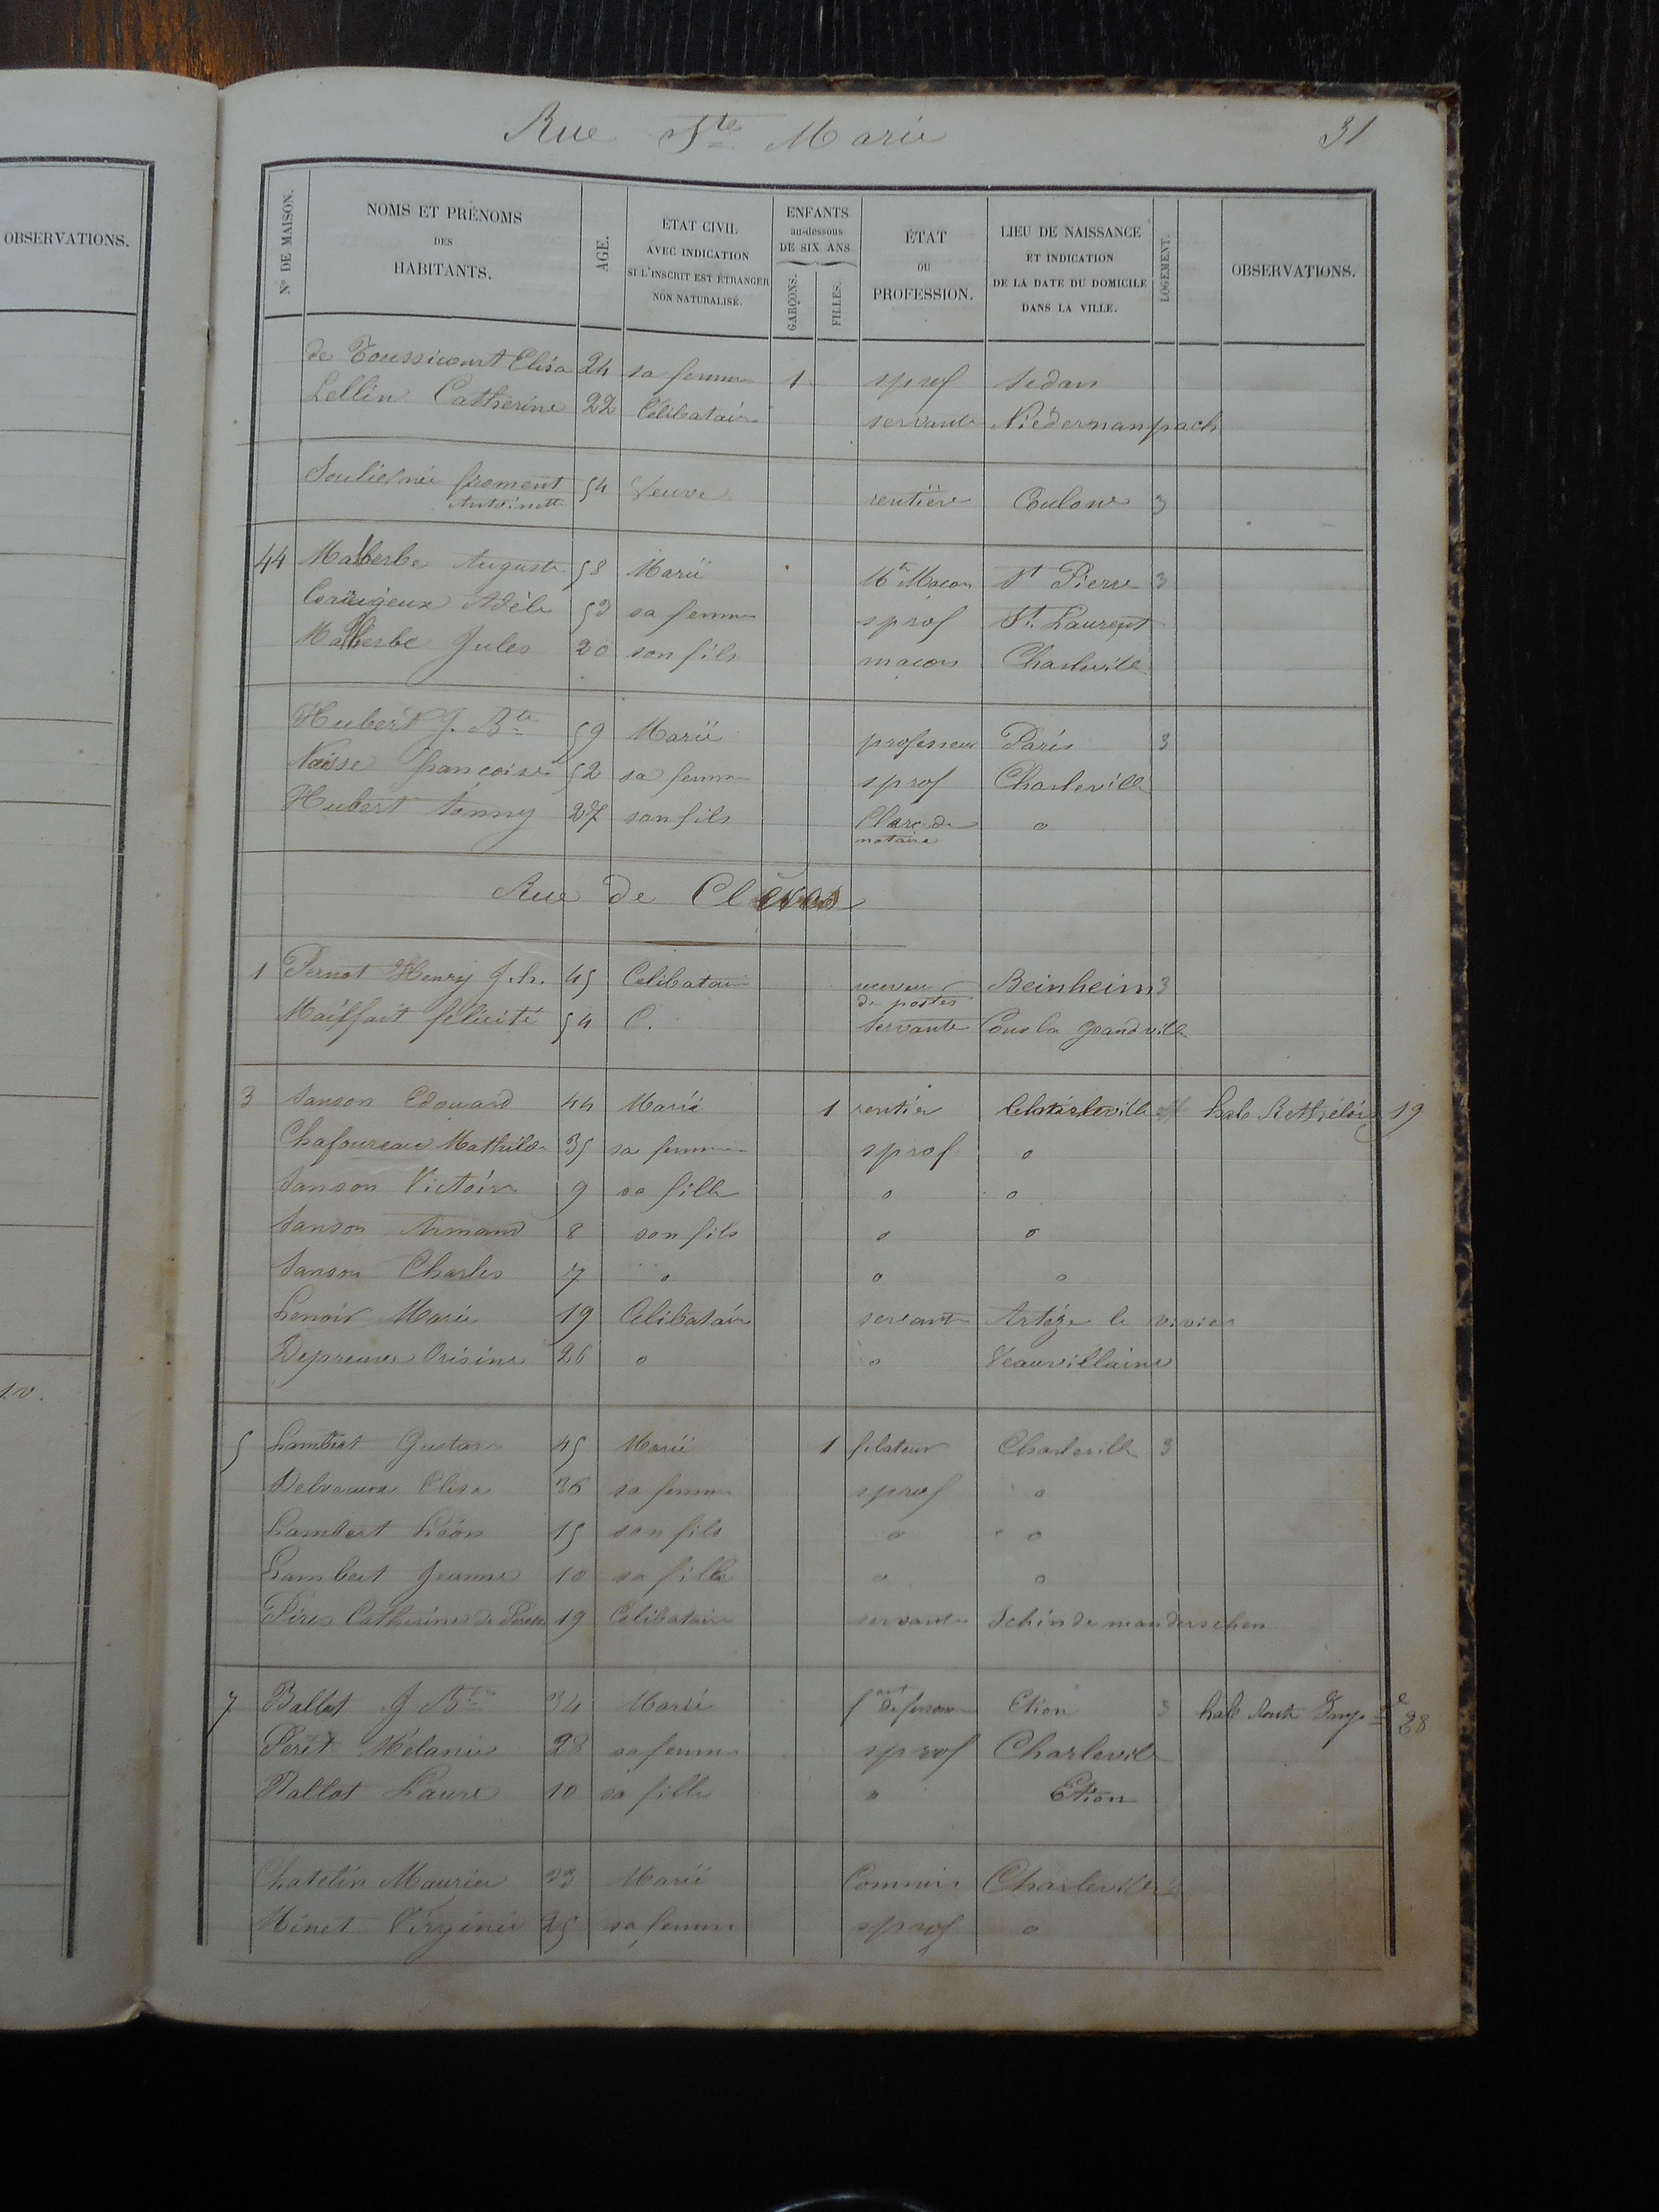 OBSERVATIONS.
Rue Ste Marie 31
N° DE MAISON. NOMS ET PRÉNOMS DES HABITANTS. AGE. ÉTAT CIVIL AVEC INDICATION SI L'INSCRIT EST ÉTRANGER NON NATURALISÉ. ENFANTS au-dessous DE SIX ANS GARÇONS. FILLES. ÉTAT OU PROFESSION. LIEU DE NAISSANCE ET INDICATION DE LA DATE DU DOMICILE DANS LA VILLE. LOGEMENT. OBSERVATIONS.
de Toussicourt Elisa 24 sa femme 1 sprof Sedan
Lellin Catherine 22 Célibataire servante Niedermanpach
Soulié née froment 54 Veuve rentière 3
Antoinette
44 Malherbe Auguste 58 Marié Mte Maçon St Pierre 3
Adèle 53 sa femme sprof St Laurent
Malherbe Jules 20 son fils maçon Charleville
Hubert J. Bte 59 Marié professeur Paris 3
françoise 52 sa femme sprof Charleville
Hubert 27 son fils Clerc de o
notaire
Rue de Clèves
1 Pernot Henry J.h. 45 Celibataire receveur Beinheim 3
de postes
félicité 54 C. servante Cons la grandville
3 Sanson Edouard 44 Marié 1 rentier Charleville hab Rethélois 19
Chafoureau Mathilde 35 sa femme sprof o
Sanson Victoire 9 sa fille o o
Sanson Armand 8 son fils o o
Sanson Charles 7 o o o
Lenoir Marie 19 Célibataire servante le vivier
Orisine 26 o o
5 Lambert Gustave 45 Marié 1 filateur Charleville 3
Delvaux Elisa 36 sa femme sprof o
Lambert Léon 15 son fils o o
Lambert Jeanne 10 sa fille o o
Pires Catherine 19 Celibataire servante Schindemanderschen
7 Ballot J Bte 34 Marié Etion 3 hab 28
Peret Mélanie 28 sa femme sprof Charleville
Ballot Laure 10 sa fille o Etion
Chatelin Maurice 33 Marié Commis Charleville
Minet Virginie 25 sa femme sprof o